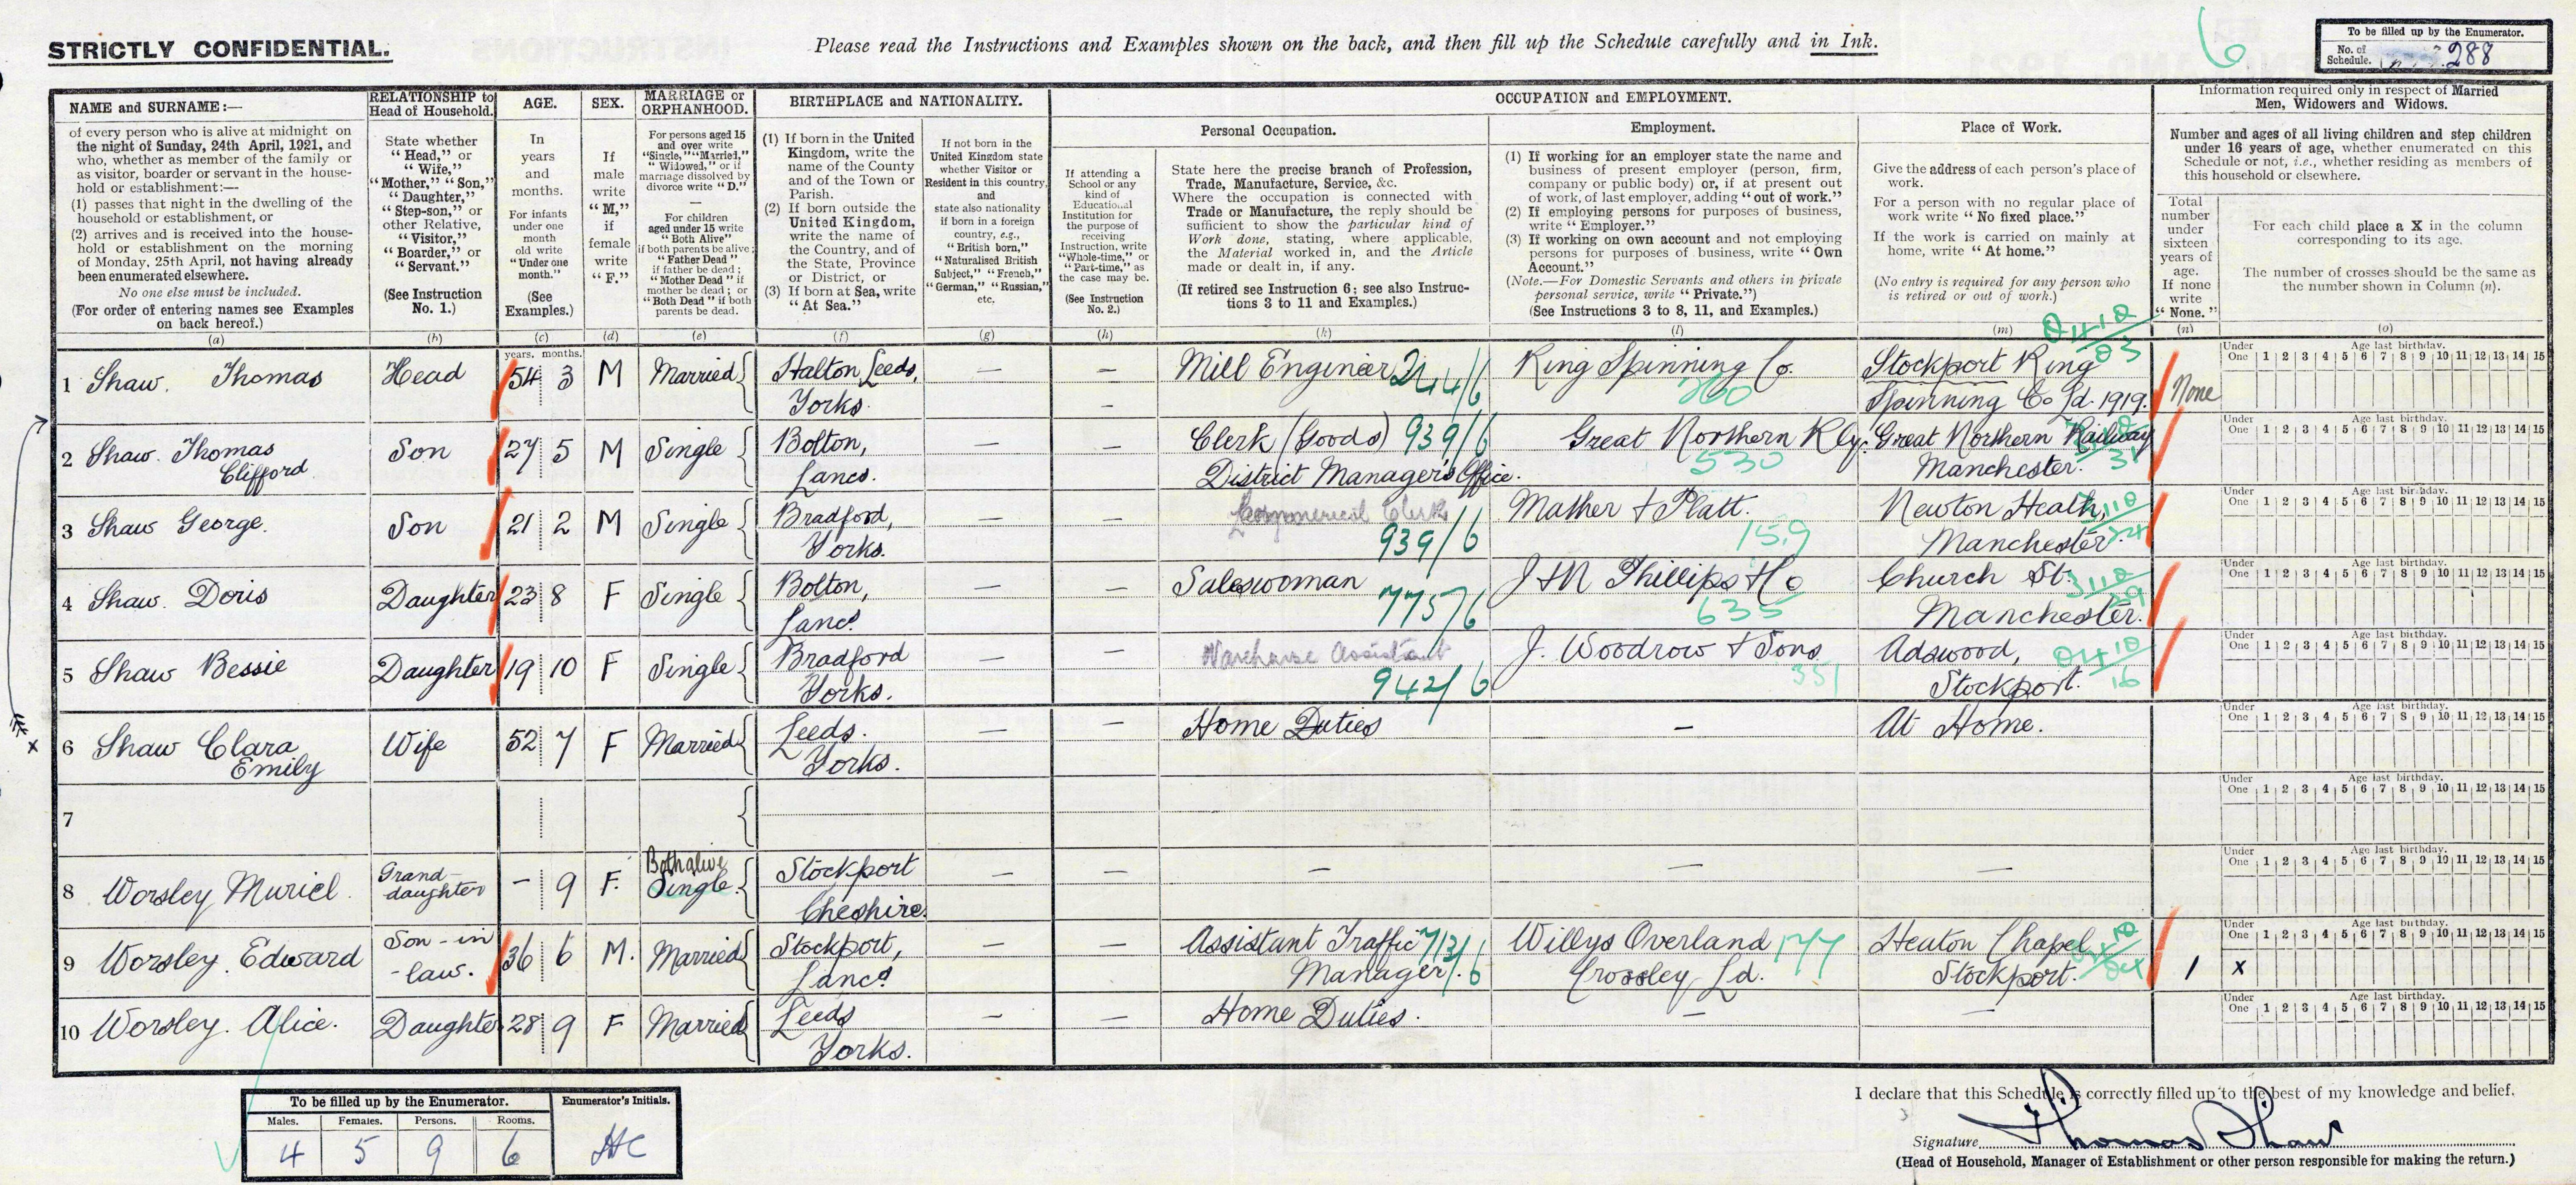 STRICTLY CONFIDENTIAL.
Please read the Instructions and Examples shown on the back, and then fill up the Schedule carefully and in Ink.
6
To be filled up by the Enumerator.
No. of
Schedule. 288
NAME and SURNAME:—
of every person who is alive at midnight on
the night of Sunday, 24th April, 1921, and
who, whether as member of the family or
as visitor, boarder or servant in the house-
hold or establishment:—
(1) passes that night in the dwelling of the
household or establishment, or
(2) arrives and is received into the house-
hold or establishment on the morning
of Monday, 25th April, not having already
been enumerated elsewhere.
No one else must be included.
(For order of entering names see Examples
on back hereof.)
(a)
RELATIONSHIP to
Head of Household.
State whether
"Head," or
"Wife,"
"Mother," "Son,"
"Daughter,"
"Step-son," or
other Relative,
"Visitor,"
"Boarder," or
"Servant."
(See Instruction
No. 1.)
(b)
AGE.
In
years
and
months.
For infants
under one
month
old write
"Under one
month."
(See
Examples.)
(c)
SEX.
If
male
write
"M,"
if
female
write
"F."
(d)
MARRIAGE or
ORPHANHOOD.
For persons aged 15
and over write
"Single," "Married,"
"Widowed," or if
marriage dissolved by
divorce write "D."
—
For children
aged under 15 write
"Both Alive"
if both parents be alive;
"Father Dead"
if father be dead;
"Mother Dead" if
mother be dead; or
"Both Dead" if both
parents be dead.
(e)
BIRTHPLACE and NATIONALITY.
(1) If born in the United
Kingdom, write the
name of the County
and of the Town or
Parish.
(2) If born outside the
United Kingdom,
write the name of
the Country, and of
the State, Province
or District, or
(3) If born at Sea, write
"At Sea."
(f)
If not born in the
United Kingdom state
whether Visitor or
Resident in this country,
and
state also nationality
if born in a foreign
country, e.g.,
"British born,"
"Naturalised British
Subject," "French,"
"German," "Russian,"
etc.
(g)
OCCUPATION and EMPLOYMENT.
Personal Occupation.
If attending a
School or any
kind of
Educational
Institution for
the purpose of
receiving
Instruction, write
"Whole-time," or
"Part-time," as
the case may be.
(See Instruction
No. 2.)
(h)
State here the precise branch of Profession,
Trade, Manufacture, Service, &c.
Where the occupation is connected with
Trade or Manufacture, the reply should be
sufficient to show the particular kind of
Work done, stating, where applicable,
the Material worked in, and the Article
made or dealt in, if any.
(If retired see Instruction 6; see also Instruc-
tions 3 to 11 and Examples.)
(k)
Employment.
(1) If working for an employer state the name and
business of present employer (person, firm,
company or public body) or, if at present out
of work, of last employer, adding "out of work."
(2) If employing persons for purposes of business,
write "Employer."
(3) If working on own account and not employing
persons for purposes of business, write "Own
Account."
(Note.—For Domestic Servants and others in private
personal service, write "Private.")
(See Instructions 3 to 8, 11, and Examples.)
(l)
Place of Work.
Give the address of each person's place of
work.
For a person with no regular place of
work write "No fixed place."
If the work is carried on mainly at
home, write "At home."
(No entry is required for any person who
is retired or out of work.)
(m)
Information required only in respect of Married
Men, Widowers and Widows.
Number and ages of all living children and step children
under 16 years of age, whether enumerated on this
Schedule or not, i.e., whether residing as members of
this household or elsewhere.
Total
number
under
sixteen
years of
age.
If none
write
"None."
(n)
For each child place a X in the column
corresponding to its age.
The number of crosses should be the same as
the number shown in Column (n).
(o)
years. months.
Under One Age last birthday. 1 2 3 4 5 6 7 8 9 10 11 12 13 14 15
1 Shaw. Thomas Head 54 3 M Married Halton Leeds, Yorks. — — Mill Engineer 244/6 Ring Spinning Co. 360 Stockport Ring Spinning Co Ld. 1919. None
Under One Age last birthday. 1 2 3 4 5 6 7 8 9 10 11 12 13 14 15
2 Shaw. Thomas Clifford Son 27 5 M Single Bolton, Lancs. — — Clerk (Goods) 939/6 District Manager's Office. Great Northern Rly. 530 Great Northern Railway Manchester.
Under One Age last birthday. 1 2 3 4 5 6 7 8 9 10 11 12 13 14 15
3 Shaw George. Son 21 2 M Single Bradford, Yorks. — — Commercial Clerk 939/6 Mather & Platt. 159 Newton Heath, Manchester.
Under One Age last birthday. 1 2 3 4 5 6 7 8 9 10 11 12 13 14 15
4 Shaw. Doris Daughter 23 8 F Single Bolton, Lancs. — — Saleswoman 775/6 J & N Phillips & Co 635 Church St. Manchester.
Under One Age last birthday. 1 2 3 4 5 6 7 8 9 10 11 12 13 14 15
5 Shaw Bessie Daughter 19 10 F Single Bradford Yorks. — — Warehouse Assistant 942/6 J. Woodrow & Sons 351 Adswood, Stockport.
Under One Age last birthday. 1 2 3 4 5 6 7 8 9 10 11 12 13 14 15
x 6 Shaw Clara Emily Wife 52 7 F Married Leeds. Yorks. — — Home Duties — At Home.
Under One Age last birthday. 1 2 3 4 5 6 7 8 9 10 11 12 13 14 15
7
Under One Age last birthday. 1 2 3 4 5 6 7 8 9 10 11 12 13 14 15
8 Worsley Muriel. Grand-daughter — 9 F. Both alive Single. Stockport Cheshire. — — — — —
Under One Age last birthday. 1 2 3 4 5 6 7 8 9 10 11 12 13 14 15
9 Worsley. Edward Son-in-law. 36 6 M. Married Stockport, Lancs — — Assistant Traffic Manager. 713/6 Willys Overland Crossley Ld. 177 Heaton Chapel Stockport. 1 X
Under One Age last birthday. 1 2 3 4 5 6 7 8 9 10 11 12 13 14 15
10 Worsley. Alice. Daughter 28 9 F Married Leeds Yorks. — — Home Duties. — —
To be filled up by the Enumerator.
Enumerator's Initials.
Males. Females. Persons. Rooms.
4 5 9 6 HC
I declare that this Schedule is correctly filled up to the best of my knowledge and belief.
Signature Thomas Shaw
(Head of Household, Manager of Establishment or other person responsible for making the return.)